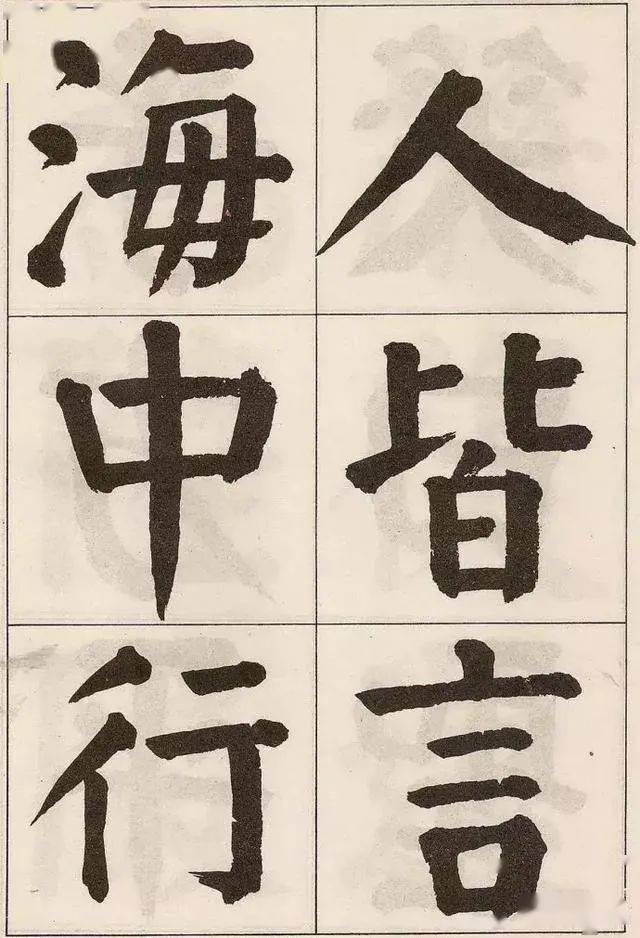 人皆言
海中行